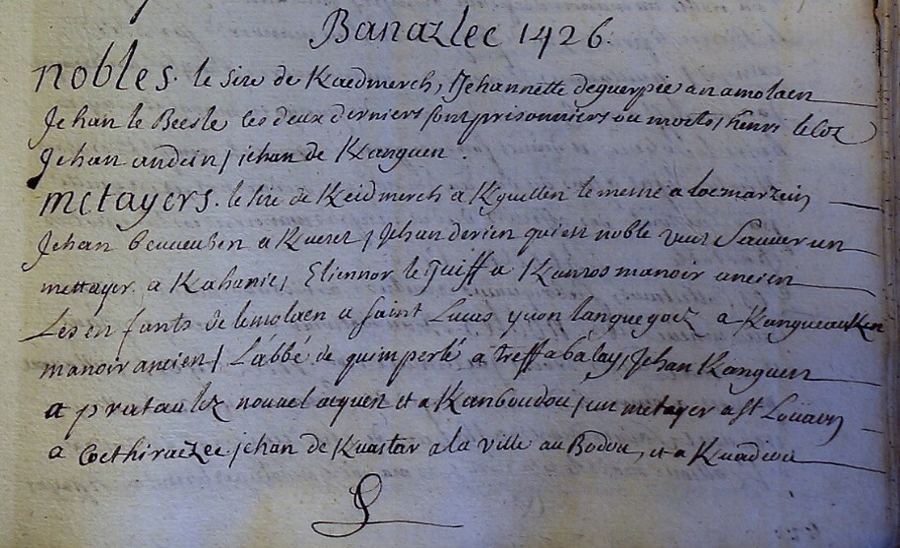 Banazlec 1426.
nobles. le sire de Kaedmerch, Jehannette deguerpie an amolaen
Jehan le Beesle les deux derniers sont prisonniers ou morts, henri le Coz
Jehan andein, jehan de Kanguen.
metayers. le sire de Keidmerch a Kguillen le mesme a locmarzein
Jehan a Jehan derien qui est noble veut Sauver un
mettayer a Kahanic, Eliennor le Juiff a Kanros manoir ancien
Les enfants de lemolaen a saint Lucas yvon languegoez a
manoir ancien, L'abbé de quimperlé a treffabalay, Jehan Kanguen
a prataulez nouvel acquest et a Kanboudou, un metayer a st
a jehan de Kuastar a la ville au Bodou, et a Kuadiou